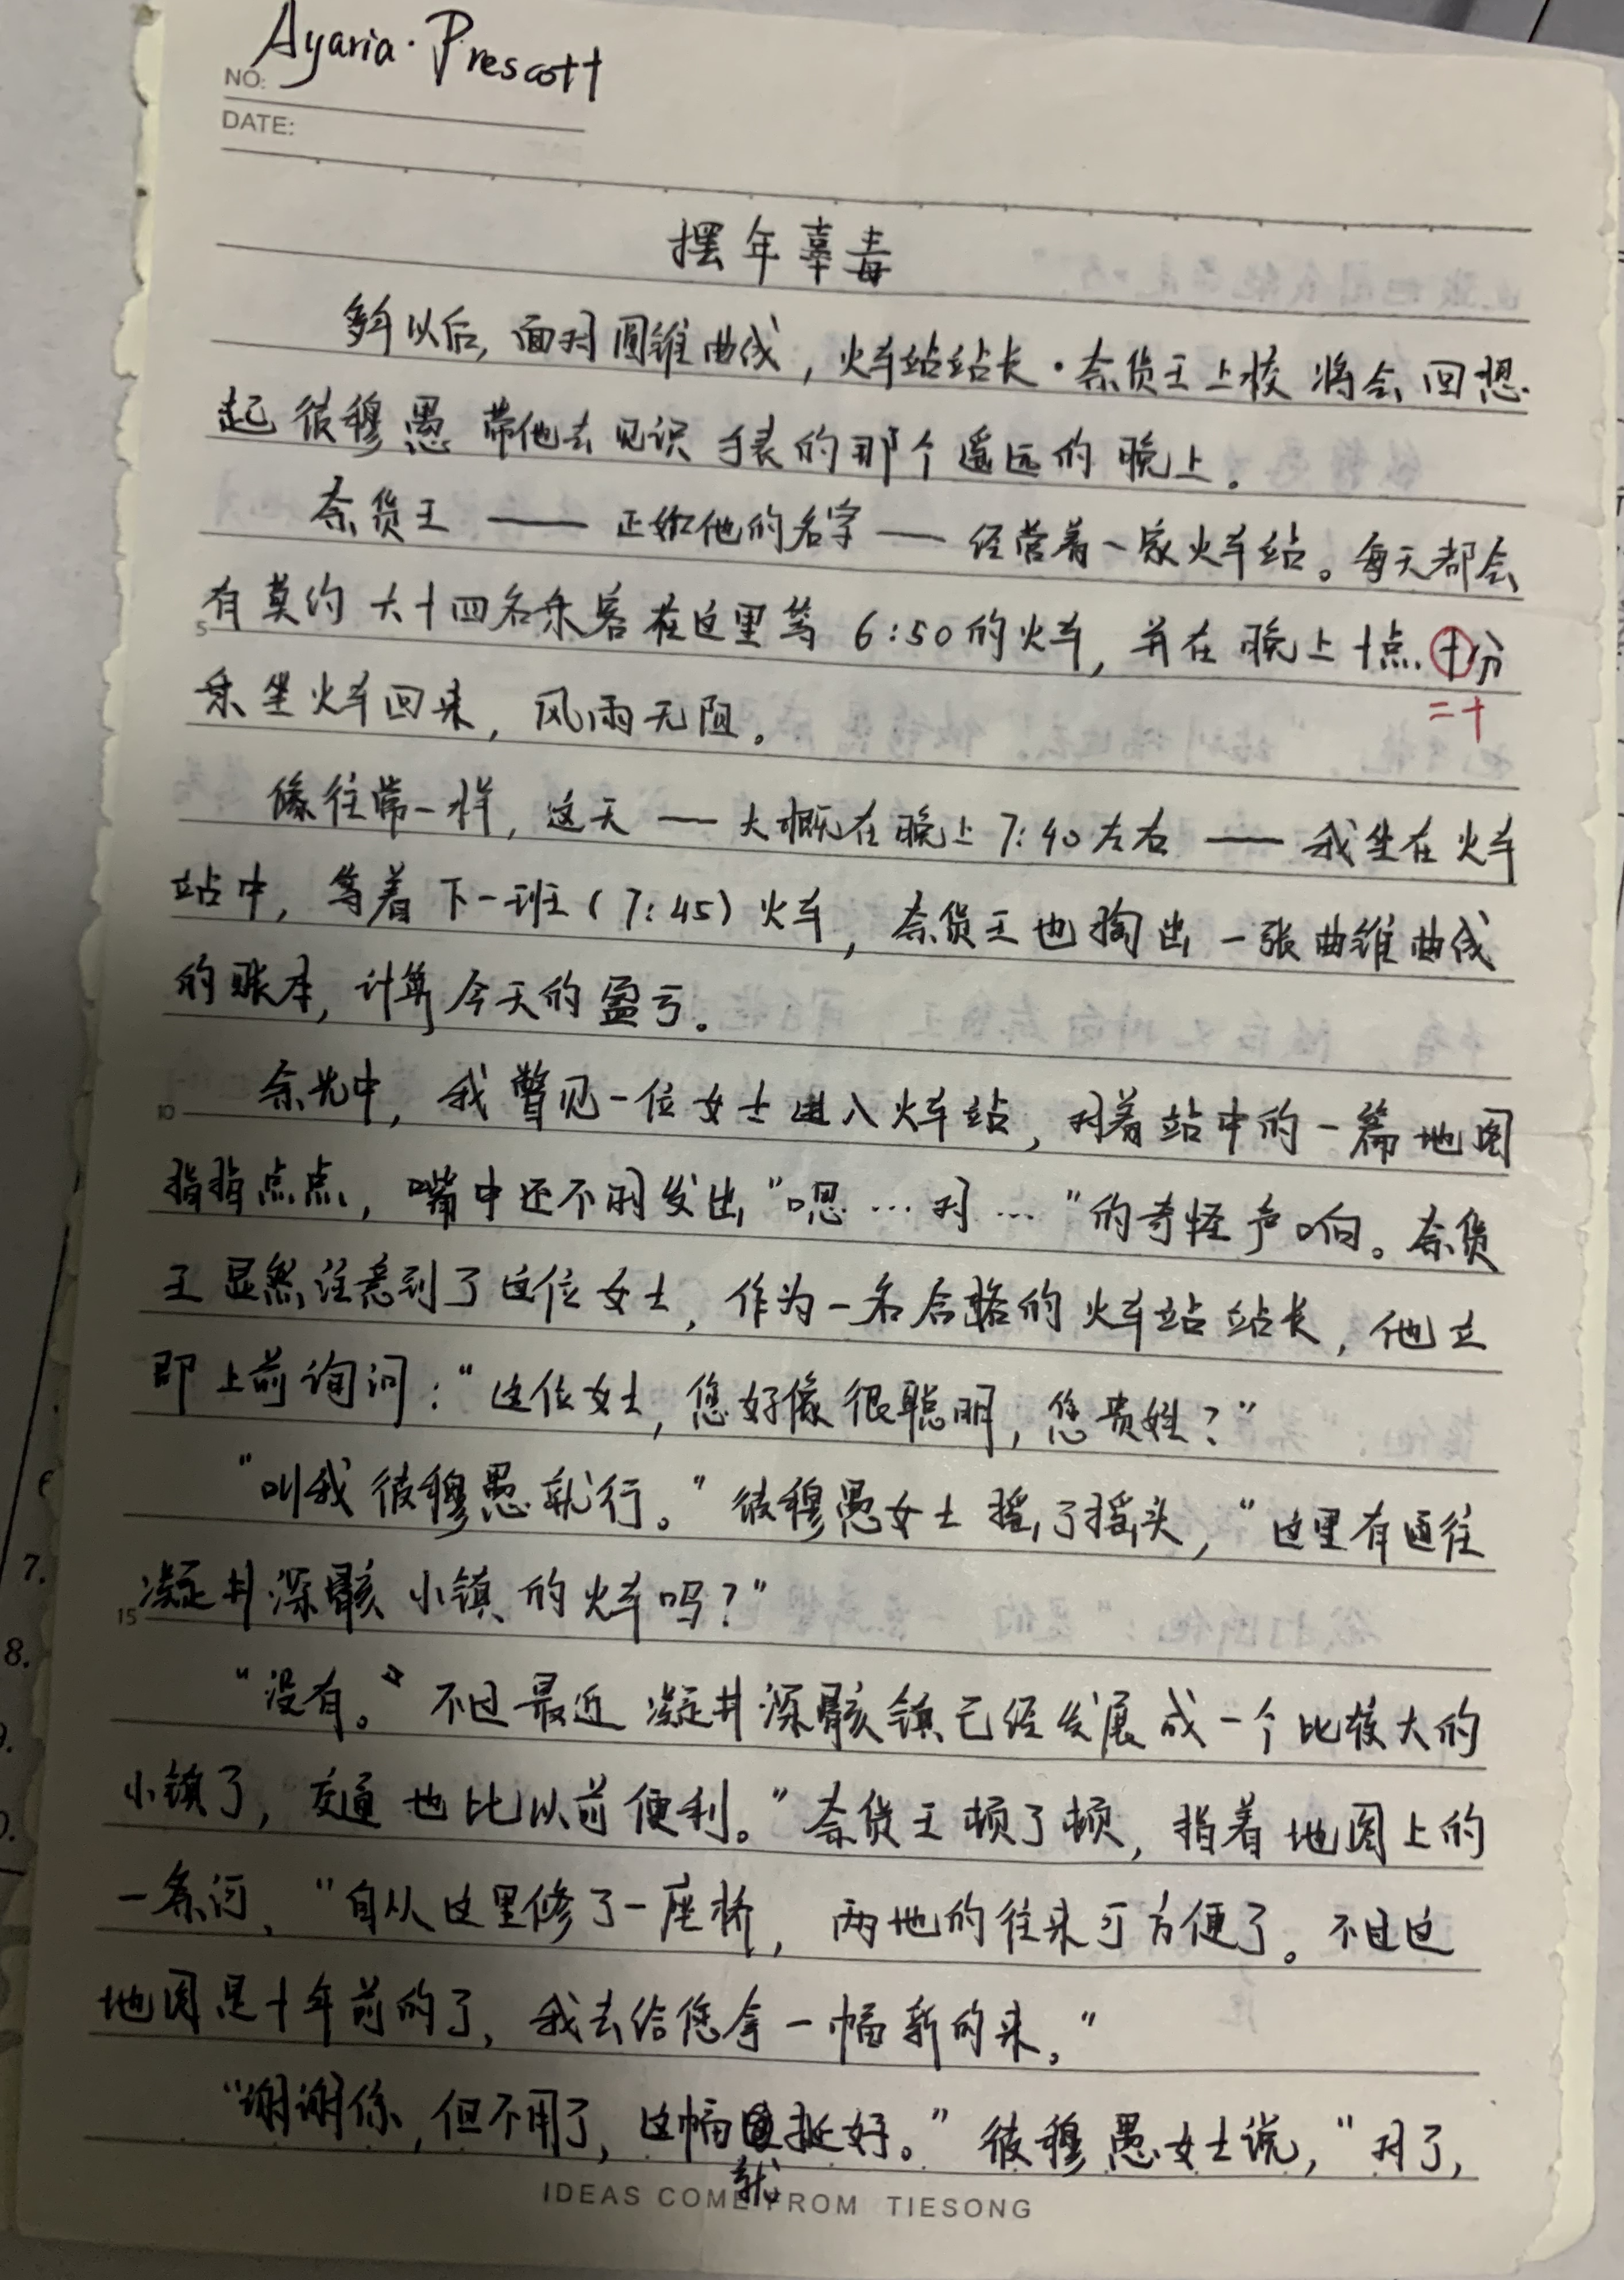 Ayaria·Prescott
NO:
DATE:
摆年辜毒
多年以后,面对圆锥曲线,火车站站长·奈货王上校将会回想
起彼穆愚带他去见识手表的那个遥远的晚上。
奈货王——正如他的名字——经营着一家火车站。每天都会
5 有莫约六十四名乘客在这里等6:50的火车,并在晚上十点十分
二十
乘坐火车回来,风雨无阻。
像往常一样,这天——大概在晚上7:40左右——我坐在火车
站中,等着下一班(7:45)火车,奈货王也掏出一张曲锥曲线
的账本,计算今天的盈亏。
10 余光中,我瞥见一位女士进入火车站,对着站中的一篇地图
指指点点,嘴中还不时发出"嗯…对…"的奇怪声响。奈货
王显然注意到了这位女士,作为一名合格的火车站站长,他立
即上前询问:"这位女士,您好像很聪明,您贵姓?"
"叫我彼穆愚就行。"彼穆愚女士摇了摇头,"这里有通往
15 凝井深骸小镇的火车吗?"
"没有。"不过最近凝井深骸镇已经发展成一个比较大的
小镇了,交通也比以前便利。"奈货王顿了顿,指着地图上的
一条河,"自从这里修了一座桥,两地的往来可方便了。不过这
地图是十年前的了,我去给您拿一幅新的来。"
"谢谢你,但不用了,这幅就挺好。"彼穆愚女士说,"对了,
IDEAS COME FROM TIESONG
7.
8.